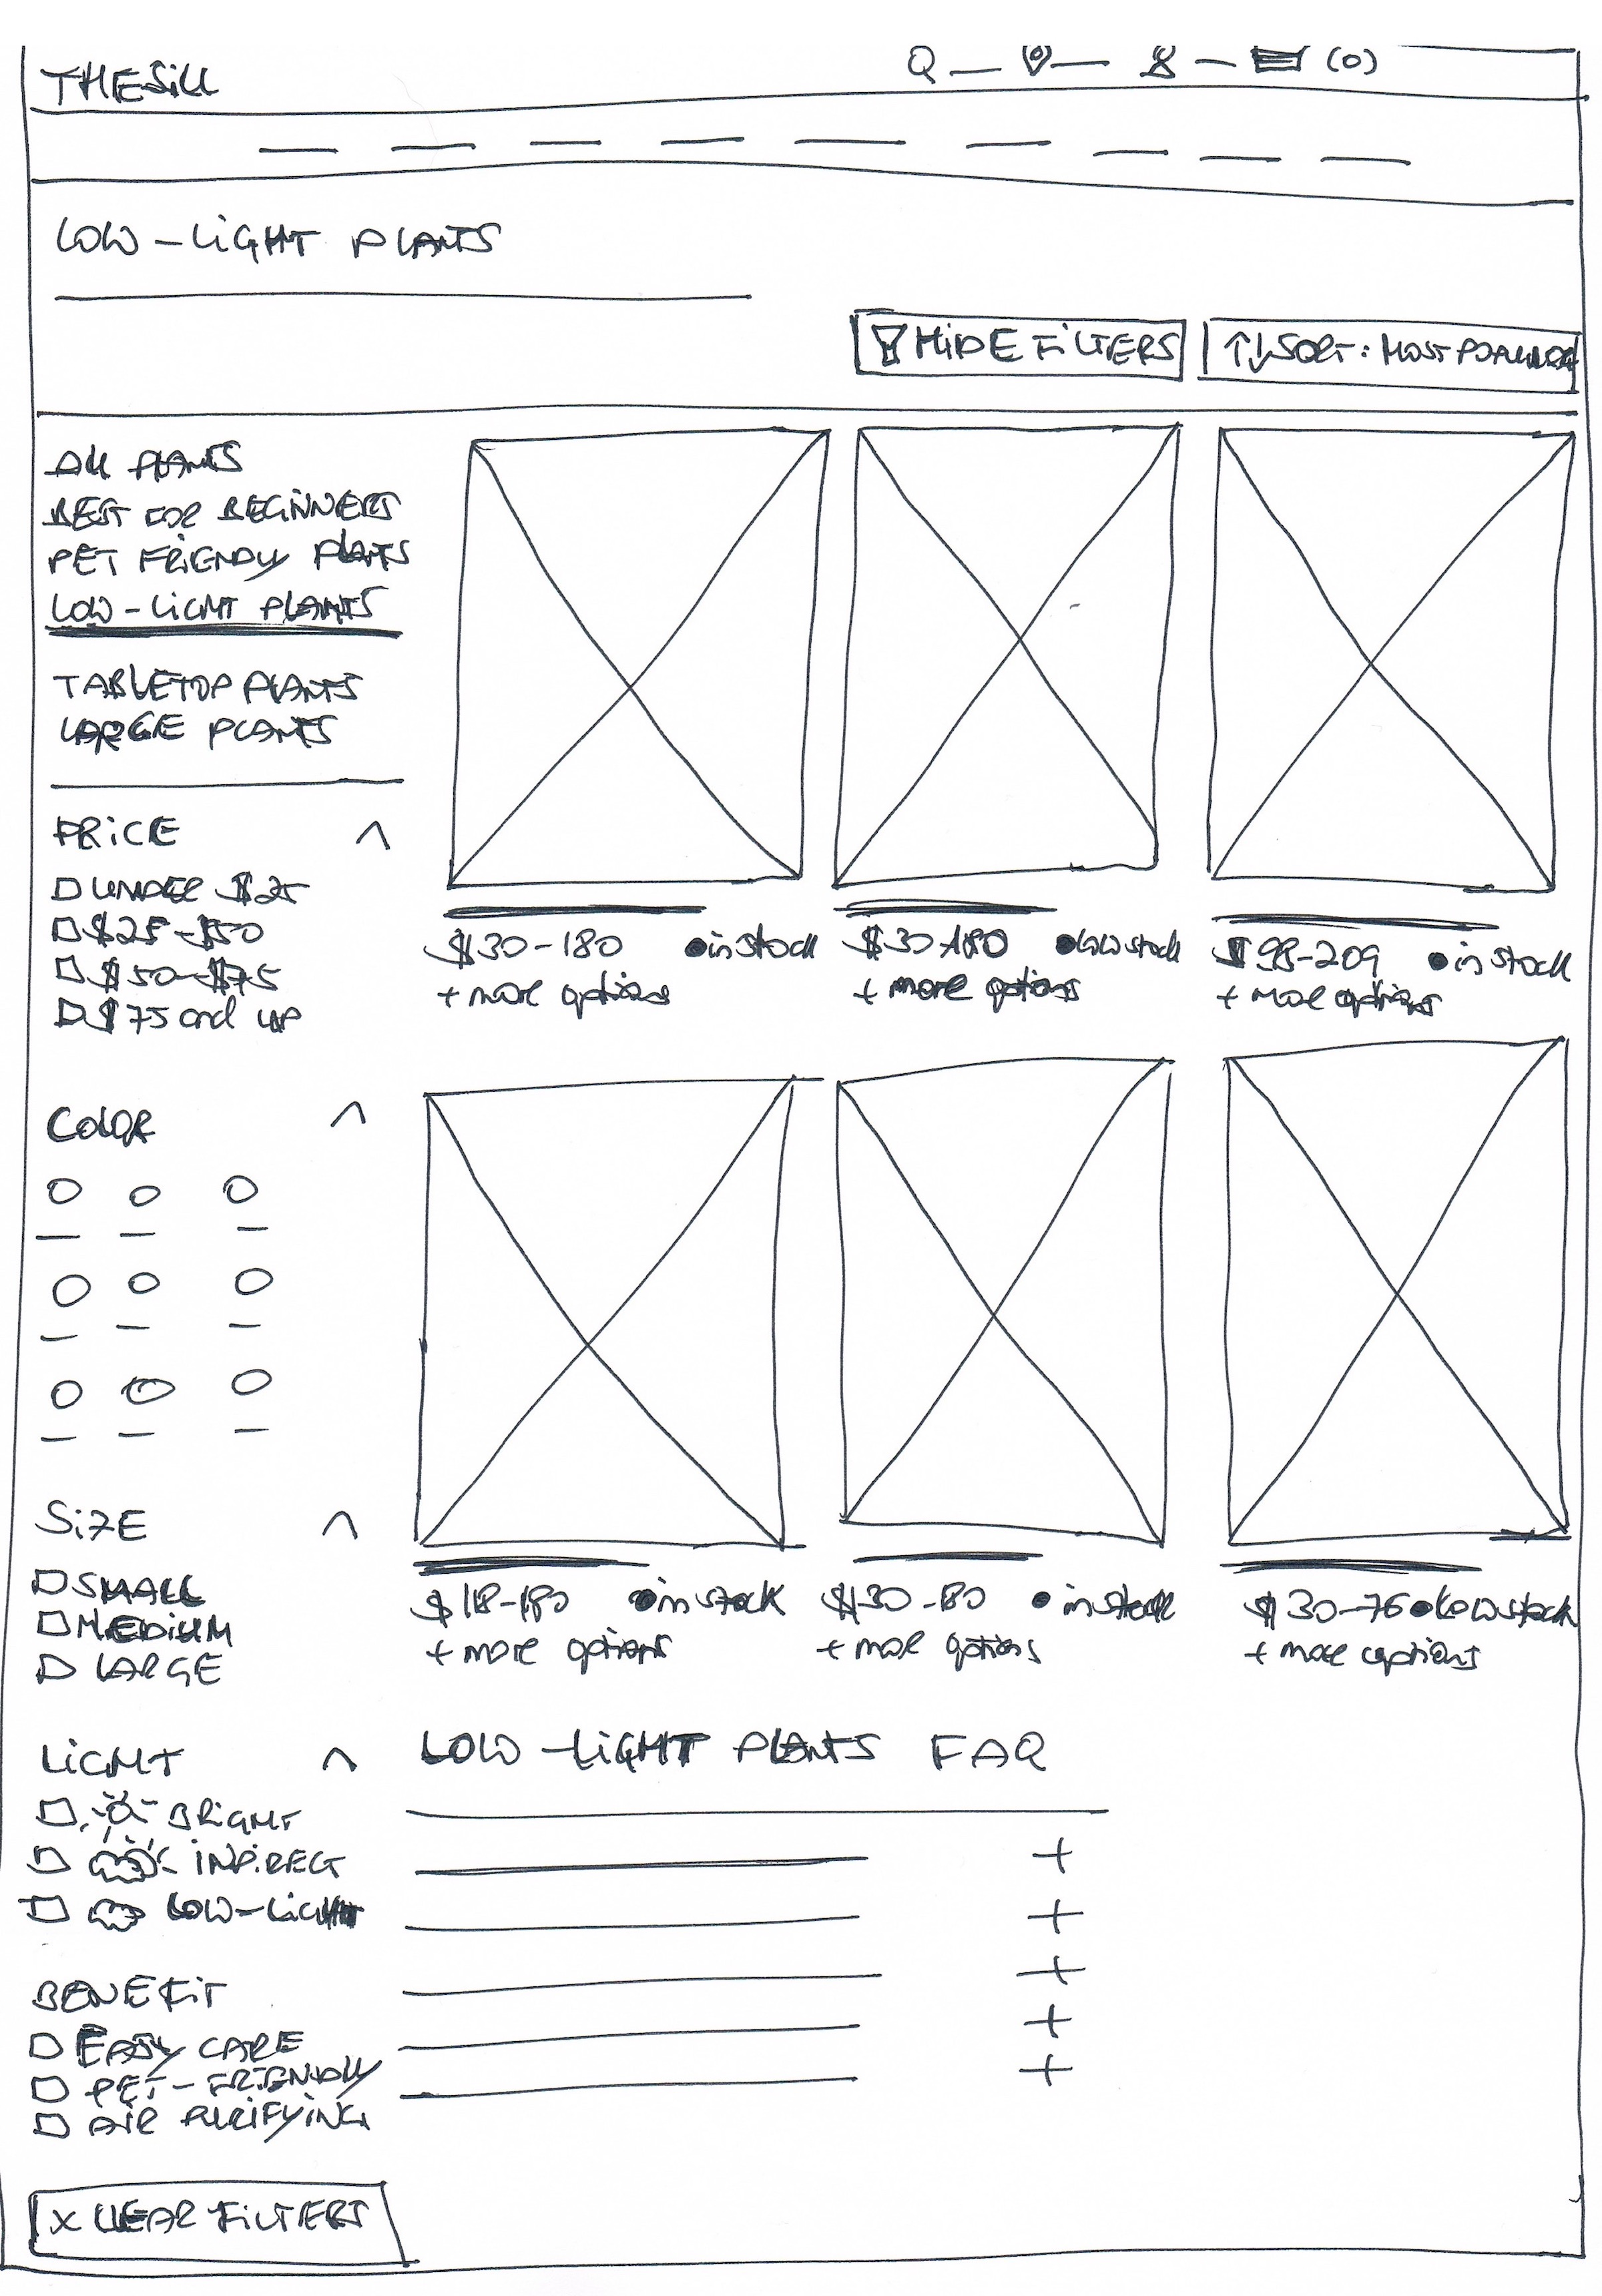 THESill
(0)
LOW-LIGHT PLANTS
HIDE FILTERS
↑↓ SORT: MOST POPULAR
All PLANTS
BEST FOR BEGINNERS
PET FRIENDLY PLANTS
LOW-LIGHT PLANTS
TABLETOP PLANTS
LARGE PLANTS
PRICE
UNDER $25
$25-$50
$50-$75
$75 and UP
COLOR
SIZE
SMALL
MEDIUM
LARGE
LIGHT
BRIGHT
INDIRECT
LOW-LIGHT
BENEFIT
EASY CARE
PET-FRIENDLY
AIR PURIFYING
X CLEAR FILTERS
$30-180 in stock
+ more options
$30-180 low stock
+ more options
$98-209 in stock
+ more options
$18-180 in stock
+ more options
$30-80 in stock
+ more options
$30-76 low stock
+ more options
LOW-LIGHT PLANTS FAQ